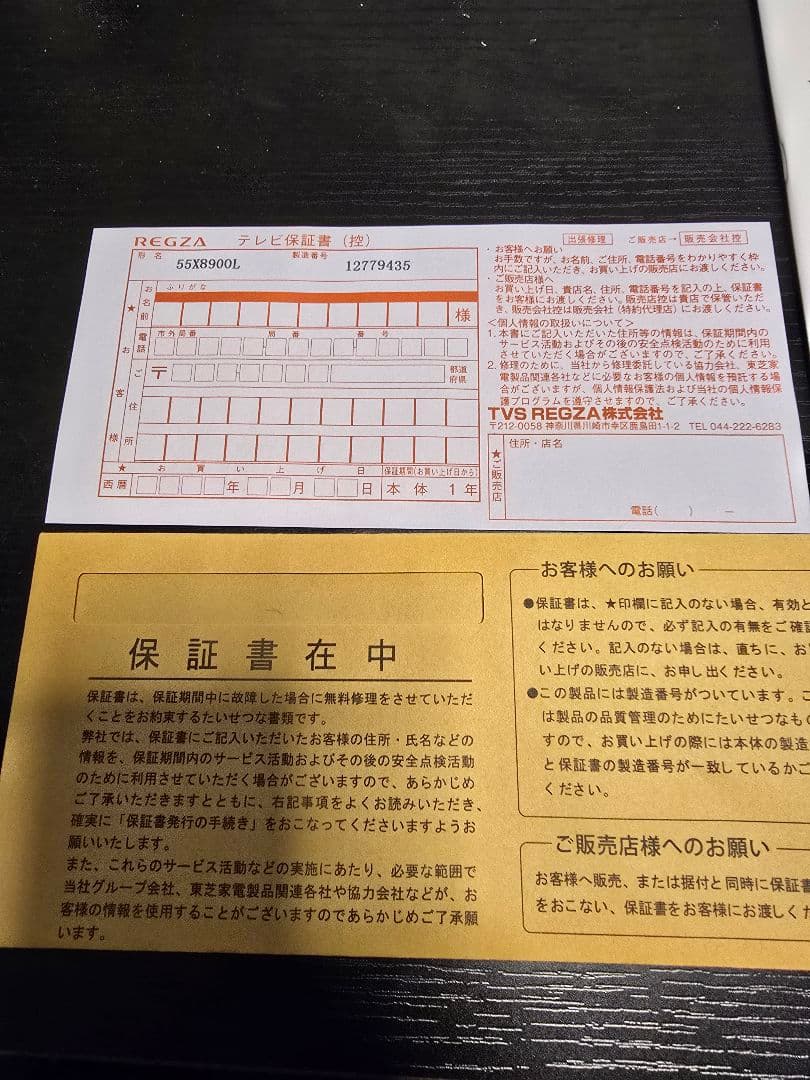 REGZA テレビ保証書（控）
形名 55X8900L 製造番号 12779435
ふりがな
★お客様
お名前
様
電話
市外局番 局番 番号
ご住所
〒
都道府県
★お買い上げ日
保証期間(お買い上げ日から)
西暦 年 月 日 本体 1年
出張修理 ご販売店→ 販売会社控
・お客様へお願い
お手数ですが、お名前、ご住所、電話番号をわかりやすく枠
内にご記入いただき、お買い上げの販売店にお渡しください。
・ご販売店様へ
お買い上げ日、貴店名、住所、電話番号を記入の上、保証書
をお客様にお渡しください。販売店控は貴店で保管いただ
き、販売会社控は販売会社（特約代理店）にお渡しください。
＜個人情報の取扱いについて＞
1. 本書にご記入いただいた住所等の情報は、保証期間内の
サービス活動およびその後の安全点検活動のために利用
させていただく場合がございますので、ご了承ください。
2. 修理のために、当社から修理委託している協力会社、東芝家
電製品関連各社などに必要なお客様の個人情報を預託する場
合がございますが、個人情報保護法および当社の個人情報保
護プログラムを遵守させますので、ご了承ください。
TVS REGZA株式会社
〒212-0058 神奈川県川崎市幸区鹿島田1-1-2 TEL 044-222-6283
★ご販売店
住所・店名
電話( ) －
保証書在中
保証書は、保証期間中に故障した場合に無料修理をさせていただ
くことをお約束するたいせつな書類です。
弊社では、保証書にご記入いただいたお客様の住所・氏名などの
情報を、保証期間内のサービス活動およびその後の安全点検活動
のために利用させていただく場合がございますので、あらかじめ
ご了承いただきますとともに、右記事項をよくお読みいただき、
確実に「保証書発行の手続き」をおこなってくださいますようお
願いいたします。
また、これらのサービス活動などの実施にあたり、必要な範囲で
当社グループ会社、東芝家電製品関連各社や協力会社などが、お
客様の情報を使用することがございますのであらかじめご了承願
います。
お客様へのお願い
●保証書は、★印欄に記入のない場合、有効と
はなりませんので、必ず記入の有無をご確認
ください。記入のない場合は、直ちに、お
い上げの販売店に、お申し出ください。
●この製品には製造番号がついています。こ
は製品の品質管理のためにたいせつなもの
すので、お買い上げの際には本体の製造
と保証書の製造番号が一致しているかご
ください。
ご販売店様へのお願い
お客様へ販売、または据付と同時に保証書
をおこない、保証書をお客様にお渡しくだ